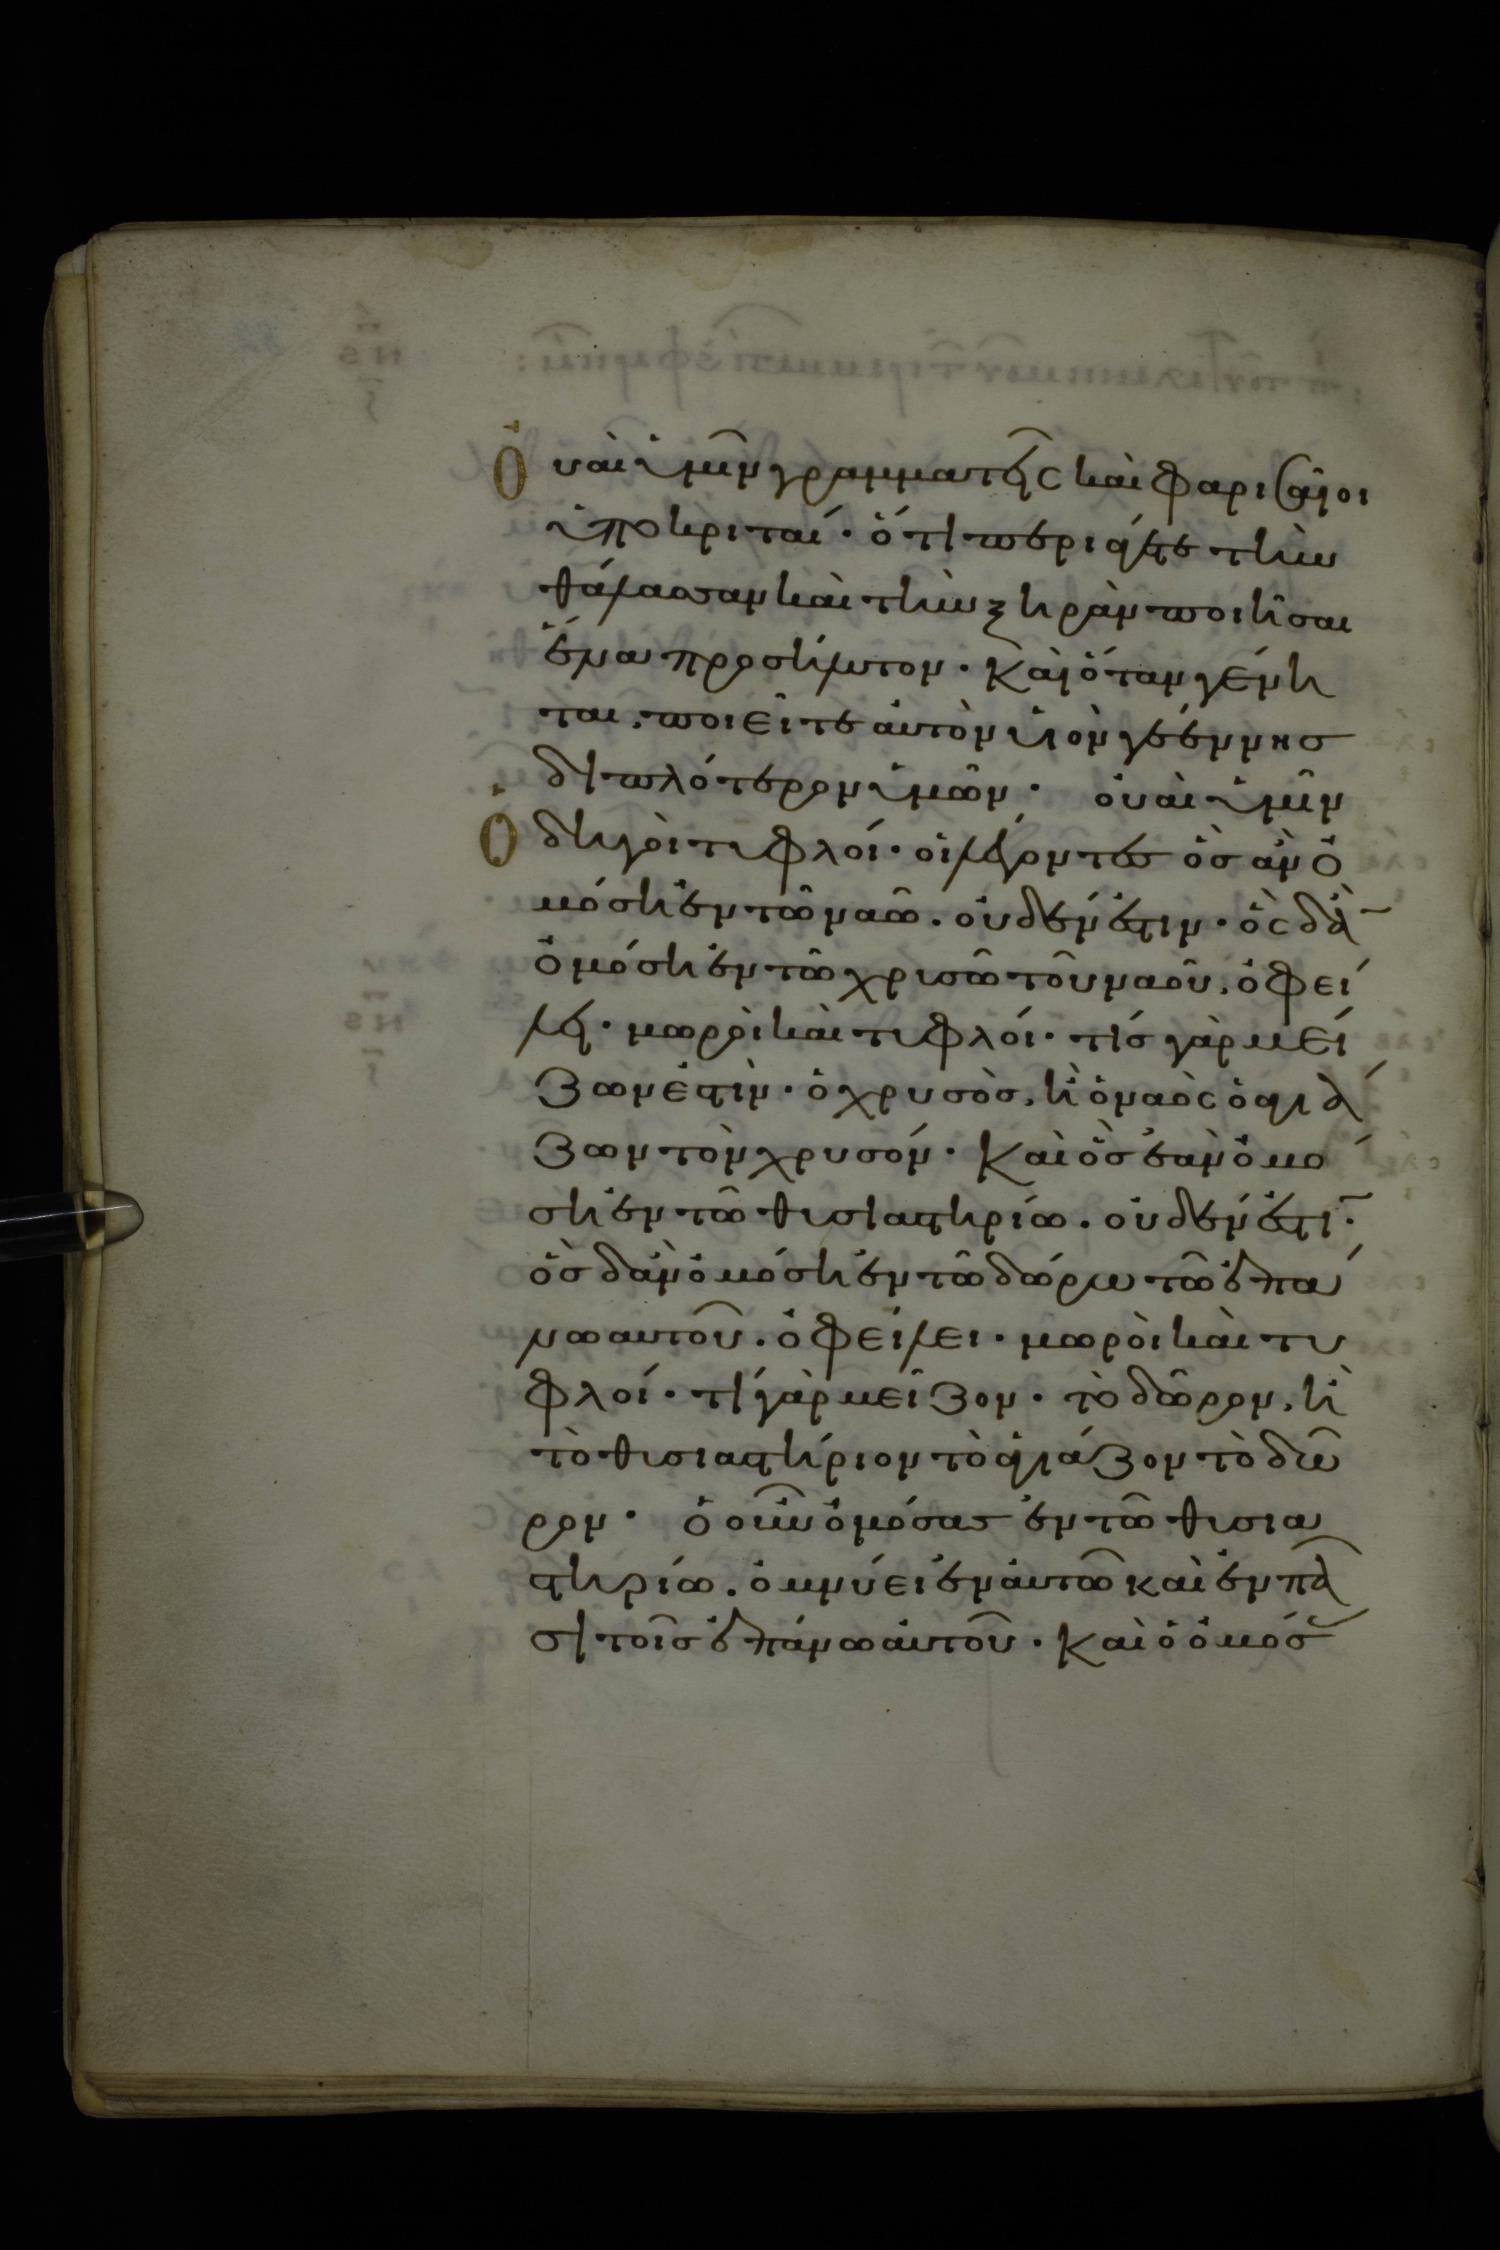 Ὀυὰι ὑμῖν γραμματεῖς καὶ φαρισαῖοι
ὑποκριταί· ὅτι περιάγετε τὴν
θάλασσαν καὶ τὴν ξηρὰν ποιῆσαι
ἕνα προσήλυτον· καὶ ὅταν γένη
ται, ποιεῖτε ἀυτὸν υἱὸν γεέννησ
διπλότερον ὑμῶν· ὀυὰι ὑμῖν
Ὁδηγὸι τυφλοί· οἱ λέγοντεσ ὃσ ἂν ὀ
μόση ἐν τῶ ναῶ. ὀυδέν ἐστιν· ὃς δ ἂ̄
ὀμόση ἐν τῶ χρυσῶ τοῦ ναοῦ, ὀφεί
λει· μωρὸι καὶ τυφλοί· τίσ γὰρ μεί
ζων ἐστὶν· ὁ χρυσὸσ, ἢ ὁ ναὸς ὁ ἁγιά
ζων τὸν χρυσόν· καὶ ὃσ ἐὰν ὀμό
ση ἐν τῶ θυσιαστηρίω. ὀυδέν ἐστῑ·
ὃσ δ ἂν ὀμόση ἐν τῶ δώρω τῶ ἐπά
νω αυτοῦ. ὀφείλει· μωρὸι καὶ τυ
φλοί· τί γὰρ μεῖζον· τὸ δῶρον, ἢ
τὸ θυσιαστήριον τὸ ἁγιάζον τὸ δῶ
ρον· ὁ οὖν ὀμόσας ἐν τῶ θυσια
στηρίω. ὀμνύει ἐν ἀυτῶ καὶ ἐν πᾶ
σι τοῖσ ἐπάνω ἀυτοῦ· καὶ ὁ ὀμόσασ